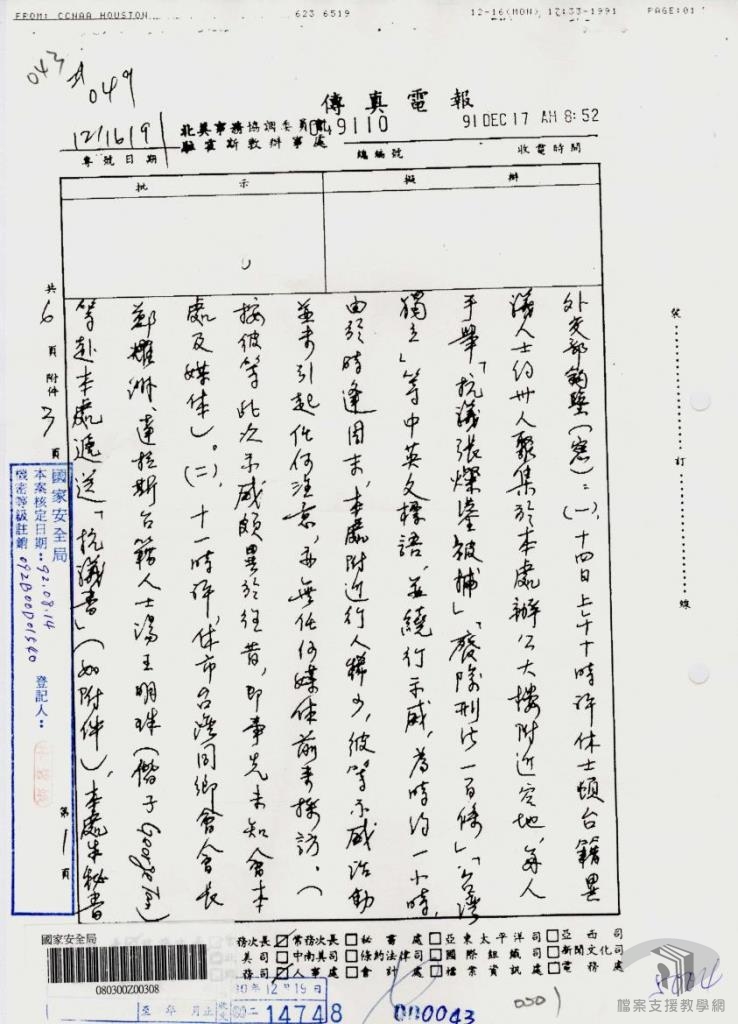 FROM: CCNAA HOUSTON 623 6519 12-16(MON) 17:33-1991 PAGE:01
043 049
傳真電報
12/16/91 北美事務協調委員會 049110 91 DEC 17 AM 8:52
專號日期 駐霍斯敦辦事處 總編號 收電時間
批示 擬辦
外交部鈞鑒(密):(一)、十四日上午十時許休士頓台籍異
議人士約卅人聚集於本處辦公大樓附近空地,每人
手舉「抗議張燦鍙被捕」「廢除刑法一百條」「台灣
獨立」等中英文標語,並繞行示威,為時約一小時,
由於時逢周末,本處附近行人稀少,彼等示威活動
並未引起任何注意,亦無任何媒体前來採訪。(
按彼等此次示威頗異於往昔,即事先未知會本
處及媒体)。(二)、十一時許,休市台灣同鄉會會長
鄭耀淋、達拉斯台籍人士湯王明珠(偕子George Tang)
等赴本處遞送「抗議書」(如附件),本處朱秘書
共6頁附件3頁
第1頁
裝 訂 線
國家安全局
本案核定日期:92.08.14
機密等級註銷 092B00D01560 登記人:
國家安全局
080300Z00308
務次長 常務次長 秘書處 亞東太平洋司 亞西司
美司 中南美司 條約法律司 國際組織司 新聞文化司
務司 人事處 會計處 檔案資訊處 電務處
80年12月19日
14748
000043
0001
檔案支援教學網